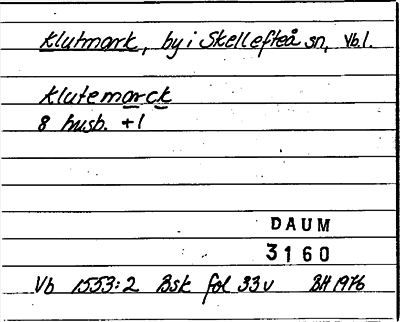 Klutmark, by i Skellefteå sn, Vb.l.
Klutemarck
8 husb. +1
DAUM
3160
Vb 1553:2 Bsk fol 33v BH 1976